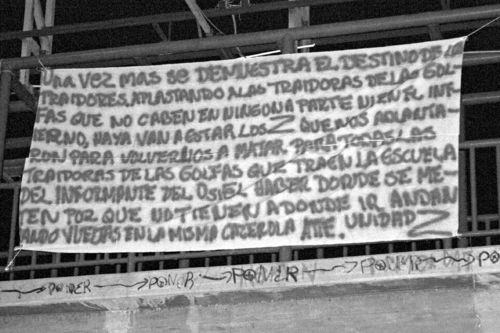 UNA VEZ MAS SE DEMUESTRA EL DESTINO DE LOS
TRAIDORES, APLASTANDO A LAS TRAIDORAS DE LAS GOL-
FAS QUE NO CABEN EN NINGONA PARTE NI EN EL INF-
IERNO, HAYA VAN A ESTAR LOS Z QUE NOS ADLANTA-
RON PARA VOLVERLOS A MATAR PARA TODAS LAS
TRAIDORAS DE LAS GOLFAS QUE TRAEN LA ESCUELA
DEL INFORMANTE DEL OSIEL HABER DONDE SE ME-
TEN POR QUE NO TIENEN A DONDE IR ANDAN
ANDO VUELTAS EN LA MISMA CACEROLA ATTE. UNIDAD Z
PODER PONER